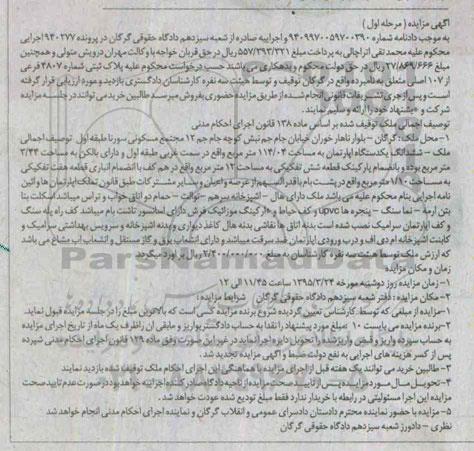 آگهی مزایده ( مرحله اول )
به موجب دادنامه شماره ۹۴۰۹۹۷۰۰۵۹۷۰۰۳۹۰ و اجراییه صادره از شعبه سیزدهم دادگاه حقوقی گرگان در پرونده ۹۴۰۲۷۷ اجرایی
محکوم علیه محمد تقی اتراچالی به پرداخت مبلغ ۵۵۷/۳۹۳/۳۲۱ ریال در حق قربان خواجه با وکالت مهران درویش متولی و همچنین
مبلغ ۲۷/۸۶۹/۶۶۶ ریال در حق دولت محکوم و بدهکاری می باشند حسب درخواست محکوم علیه پلاک ثبتی شماره ۴۸۰۷ فرعی
از ۱۰۷ اصلی متعلق به نامبرده واقع در گرگان توقیف و توسط هیئت سه نفره کارشناسان دادگستری بازدید و مورد ارزیابی قرار گرفته
است و پس از جری تشریفات قانونی انجام شده از طریق مزایده حضوری بفروش میرسد طالبین خرید می توانند در جلسه مزایده
شرکت و پیشنهاد خود را ارائه و تسلیم نمایند.
توصیف اجمالی ملک توقیف شده بر اساس ماده ۱۳۸ قانون اجرای احکام مدنی
۱- محل ملک: گرگان – بلوار ناهار خوران خیابان جام جم نبش کوچه جام جم ۱۲ مجتمع مسکونی سورنا طبقه اول توصیف اجمالی
ملک – ششدانگ یکدستگاه آپارتمان به مساحت ۱۱۴/۰۴ متر مربع واقع در سمت غربی طبقه اول و دارای بالکن به مساحت ۳/۴۴
متر مربع بوده و بانضمام پارکینگ قطعه شش تفکیکی به مساحت ۱۲ متر مربع واقع در هم کف با انضمام انباری قطعه هفت تفکیکی
به مساحت ۱/۱۰ متر مربع واقع در پشت بام با قدرالسهم از عرصه و اعیان و سایر مشترکات طبق قانون تملک آپارتمان ها و آئین
نامه اجرایی بنام محکوم علیه می باشد ملک دارای هال – آشپزخانه سرهم – توالت – حمام دو اتاق خواب و تراس میباشد اسکلت بنا
بتن آرمه – نما سنگ – پنجره ها upvc و کف حیاط و پارکینگ موزائیک فرش دارای آسانسور تاشت بام میباشد کف راه پله سنگ
و کف آپارتمان سرامیک نصب شده است بدنه اتاق ها نقاشی بدنه هال کاغذ دیواری و بدنه آشپزخانه و سرویس بهداشتی سرامیک و
کابنت آشپزخانه ام دی اف و درب ورودی آپارتمان ضد سرقت میباشد و دارای انشعاب برق و گاز مستقل و انشعاب آب مشاع می باشد
که ارزش ملک توسط هیئت سه نفره کارشناسان به مبلغ ۲/۷۰۰/۰۰۰/۰۰۰ ریال بر آورد میگردد
زمان و مکان مزایده
۱- زمان مزایده روز دوشنبه مورخه ۱۳۹۵/۳/۲۴ ساعت ۱۱/۴۵ الی ۱۲
۲- مکان مزایده: دفتر شعبه سیزدهم دادگاه حقوقی گرگان ( شرایط مزایده)
۱- مزایده از مبلغی که توسط کارشناس تعیین گردیده شروع برنده مزایده کسی است که بالاترین مبلغ را در جلسه مزایده قبول نماید.
۲- برنده مزایده می بایست ۱۰٪ مبلغ مورد پیشنهاد را نقدا به حساب دادگستر بواریز و مابقی آن را ظرف یک ماه از تاریخ اجرای مزایده
به حساب سپرده واریز و فیش واریز شده را تحویل دایره اجرا نماید در غیر این صورت وفق ماده ۱۲۹ قانون اجرای احکام مدنی شپرده
پس از کسر هزینه های اجرایی به نفع دولت ضبط و آگهی مزایده تجدید شد.
۳- طالبین خرید می توانند یک هفته قبل از اجرای مزایده با هماهنگی این اجرای احکام ملک توقیف شده بازدید نمایند
۴- تحویل مال مورد مزایده پس از تایید صحت مزایده از ناحیه دادگاه صادر کننده اجراییه خواهد بود در صورت عدم تایید صحت
مزایده این اجرا مسئولیتی در رابطه با خریدار ندارد فقط مبلغ تودیع شده عودت خواهد شد.
۵- مزایده با حضور نماینده محترم دادستان دادسرای عمومی و انقلاب گرگان و نماینده اجرای احکام مدنی انجام خواهد شد
نظری – دادورز شعبه سیزدهم دادگاه حقوقی گرگان
ParsNamadData